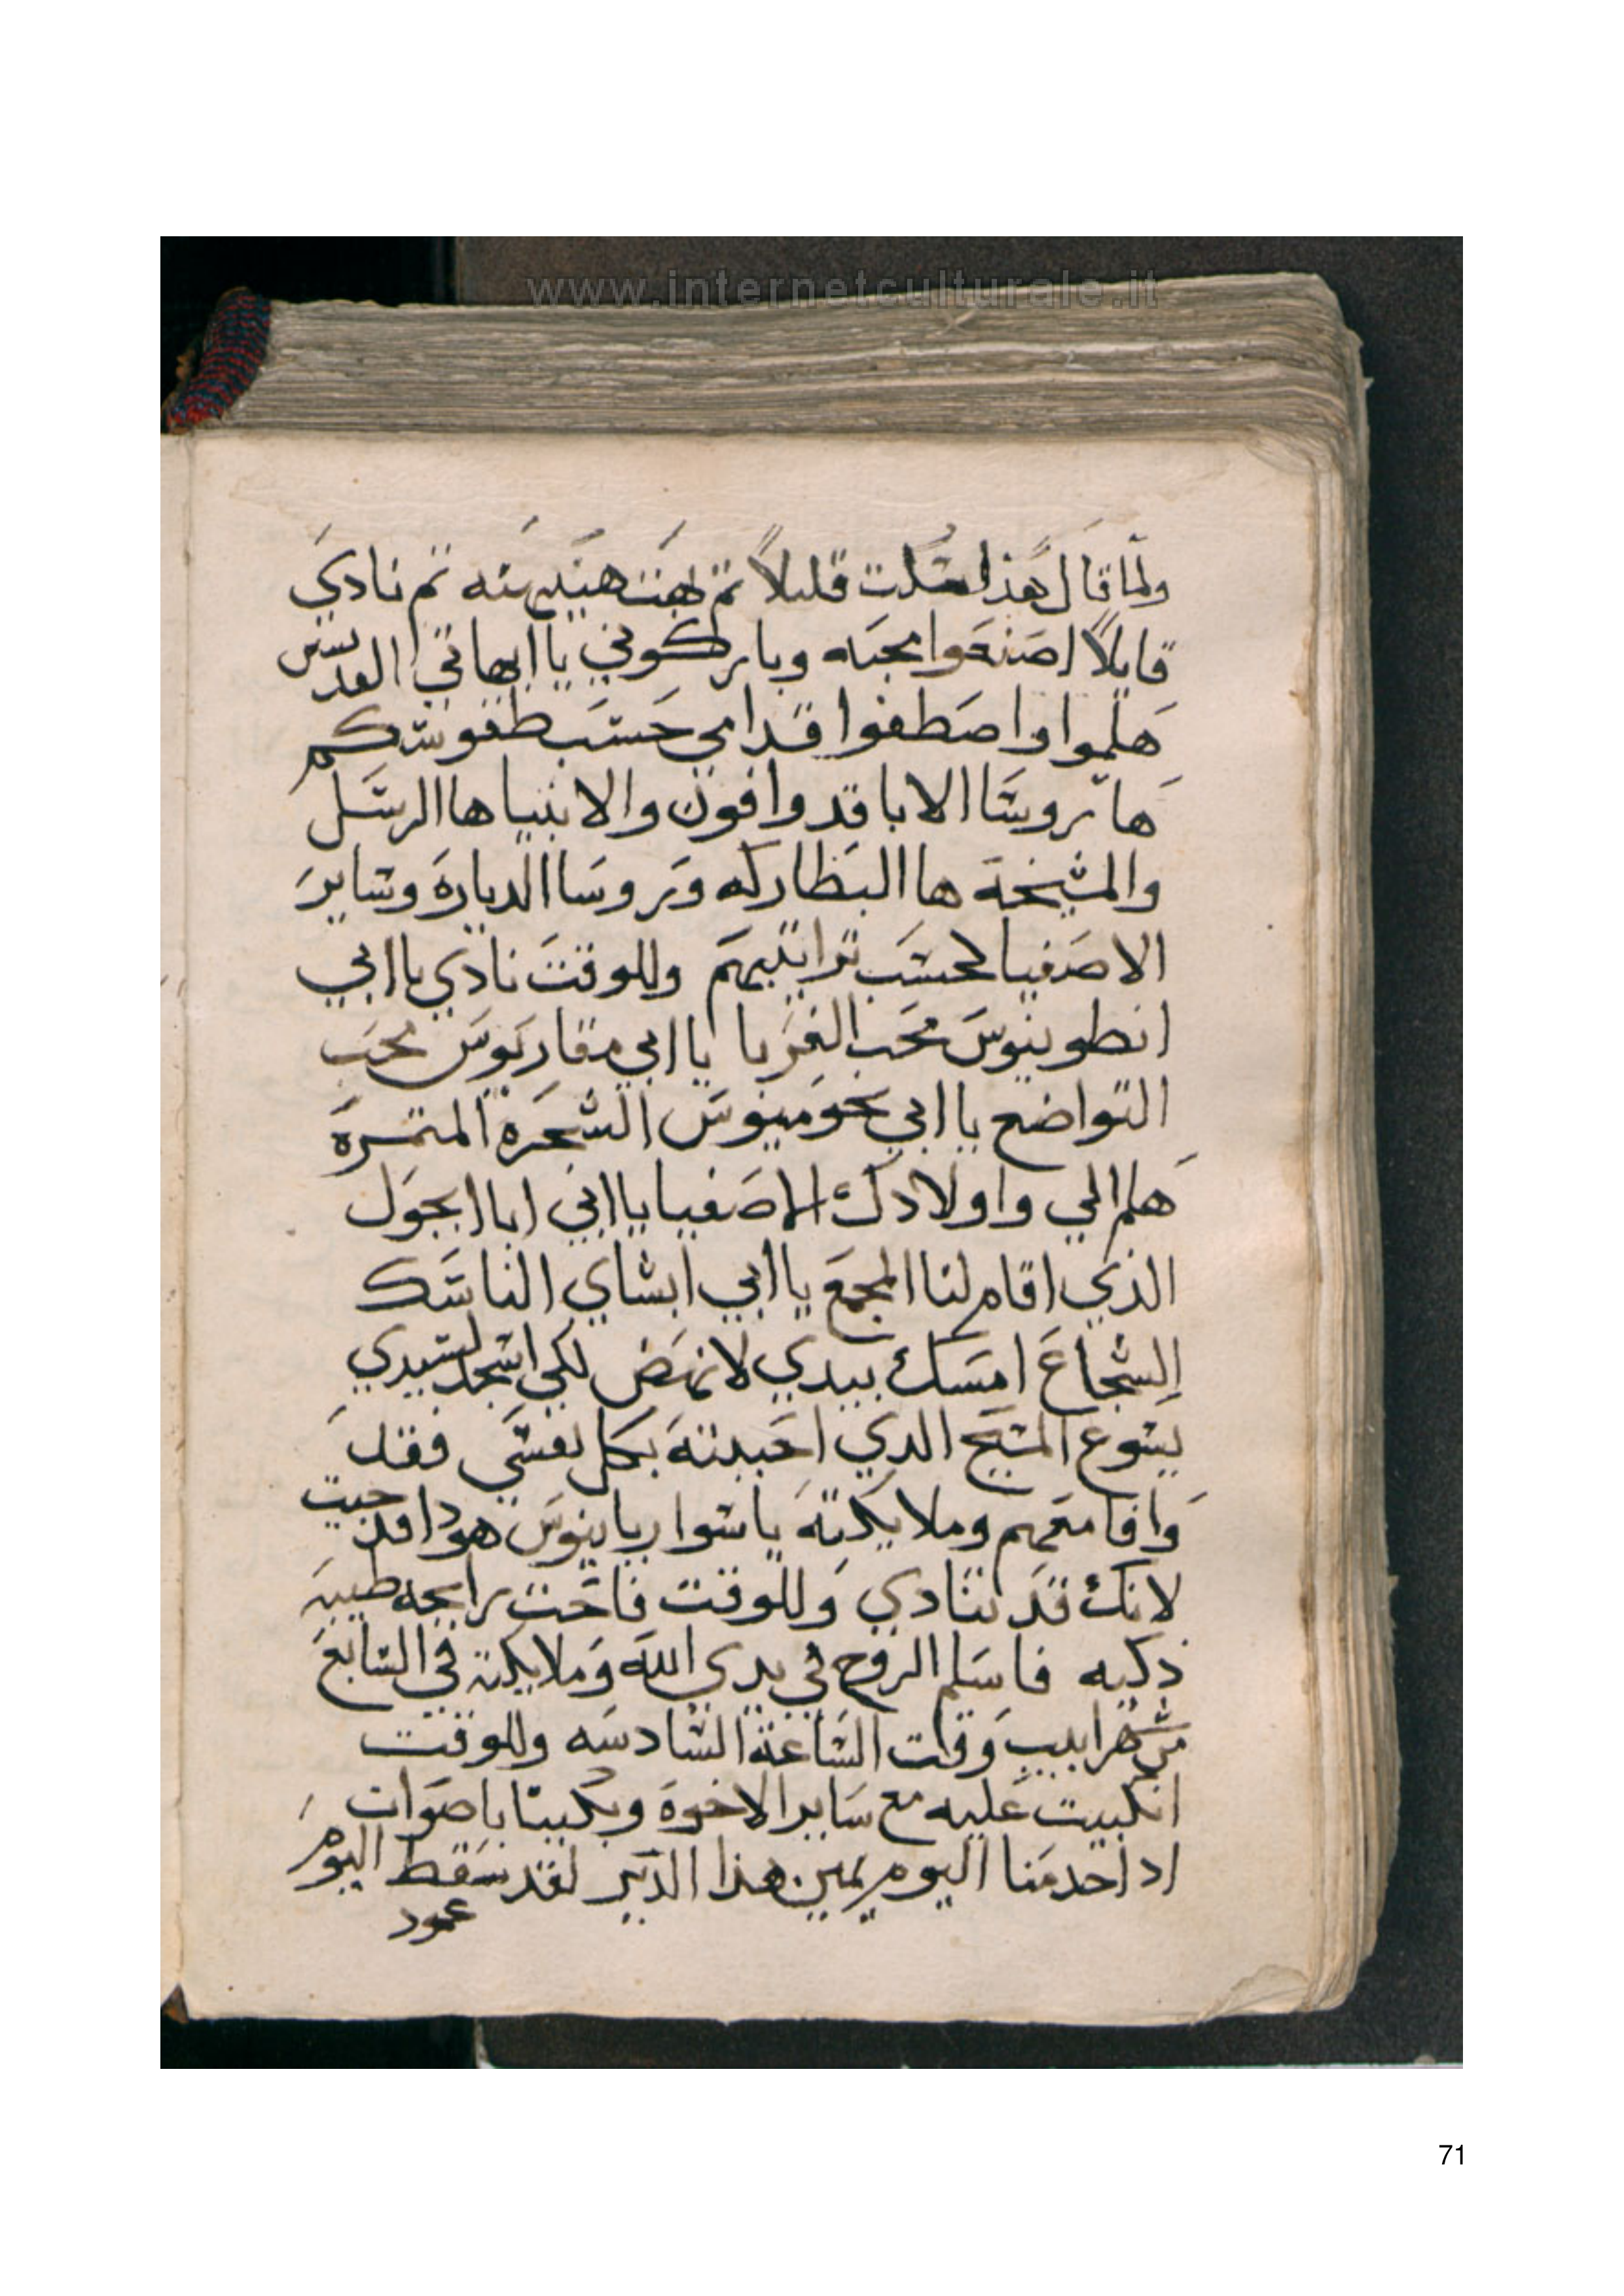 www.internetculturale.it
ولما قال هذا سكت قليلاً ثم بهت هنيهنه ثم نادي
قايلاً اصنعوا محبه وباركوني يا ابهاتي القديسين
هلموا واصطفوا قدامي حسب طقوسكم
ها روسا الابا قد وافون والانبيا ها الرسل
والمشيخة ها البطاركه وروسا الديارة وساير
الاصفيا لحسب تراتيبهم وللوقت نادي يا ابي
انطونيوس محب الغربا يا ابي مقاريوس محب
التواضع يا ابي بخوميوس الشجرة المتمرة
هلم الي واولادك الاصفيا يا ابي ابا ابجول
الذي اقام لنا المجمع يا ابي ابشاي الناسك
الشجاع امسك بيدي لانهض لكي اسجد لسيدي
يسوع المسيح الدي احببته بكل نفسي فقد
وافا معهم وملايكته يا سواريانوس هودا قد جيت
لانك قد تنادي وللوقت فاحت رايحه طيبه
ذكيه فاسلم الروح في يدي الله وملايكته في السابع
من شهر ابيب وقت الساعة السادسه وللوقت
انكبيت عليه مع ساير الاخوة وبكينا باصوات
اد احد منا اليوم يمين هذا الدير لقد سقط اليوم
عمود
71